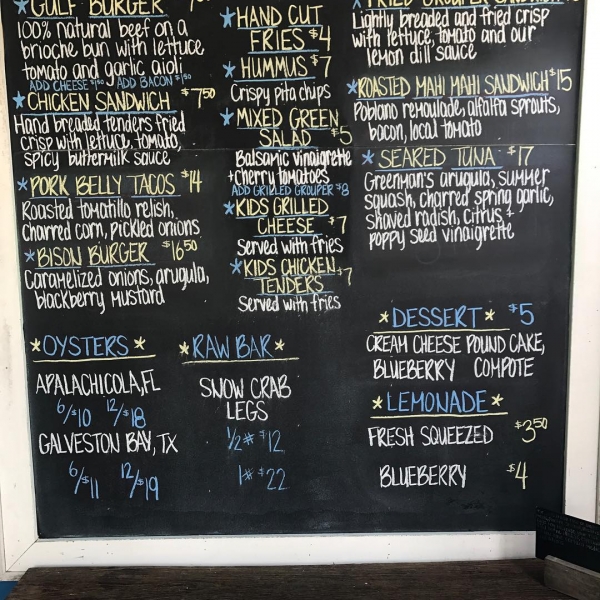 GULF BURGER
100% natural beef on a
brioche bun with lettuce
tomato and garlic aioli
ADD CHEESE $1.50 ADD BACON $1.50
CHICKEN SANDWICH $7.50
Hand breaded tenders fried
crisp with lettuce, tomato,
spicy buttermilk sauce
PORK BELLY TACOS $14
Roasted tomatillo relish,
charred corn, pickled onions
BISON BURGER $16.50
Caramelized onions, arugula,
blackberry mustard
HAND CUT
FRIES $4
HUMMUS $7
Crispy pita chips
MIXED GREEN
SALAD $5
Balsamic vinaigrette
+ cherry tomatoes
ADD GRILLED GROUPER $8
KIDS GRILLED
CHEESE $7
served with fries
KIDS CHICKEN
TENDERS $7
Served with fries
FRIED GROUPER SANDWICH
Lightly breaded and fried crisp
with lettuce, tomato and our
lemon dill sauce
ROASTED MAHI MAHI SANDWICH $15
Poblano remoulade, alfalfa sprouts,
bacon, local tomato
SEARED TUNA $17
Greenman's arugula, summer
squash, charred spring garlic,
shaved radish, citrus +
poppy seed vinaigrette
OYSTERS
APALACHICOLA, FL
6/$10 12/$18
GALVESTON BAY, TX
6/$11 12/$19
RAW BAR
SNOW CRAB
LEGS
1/2# $12
1# $22
DESSERT $5
CREAM CHEESE POUND CAKE,
BLUEBERRY COMPOTE
LEMONADE
FRESH SQUEEZED $3.50
BLUEBERRY $4